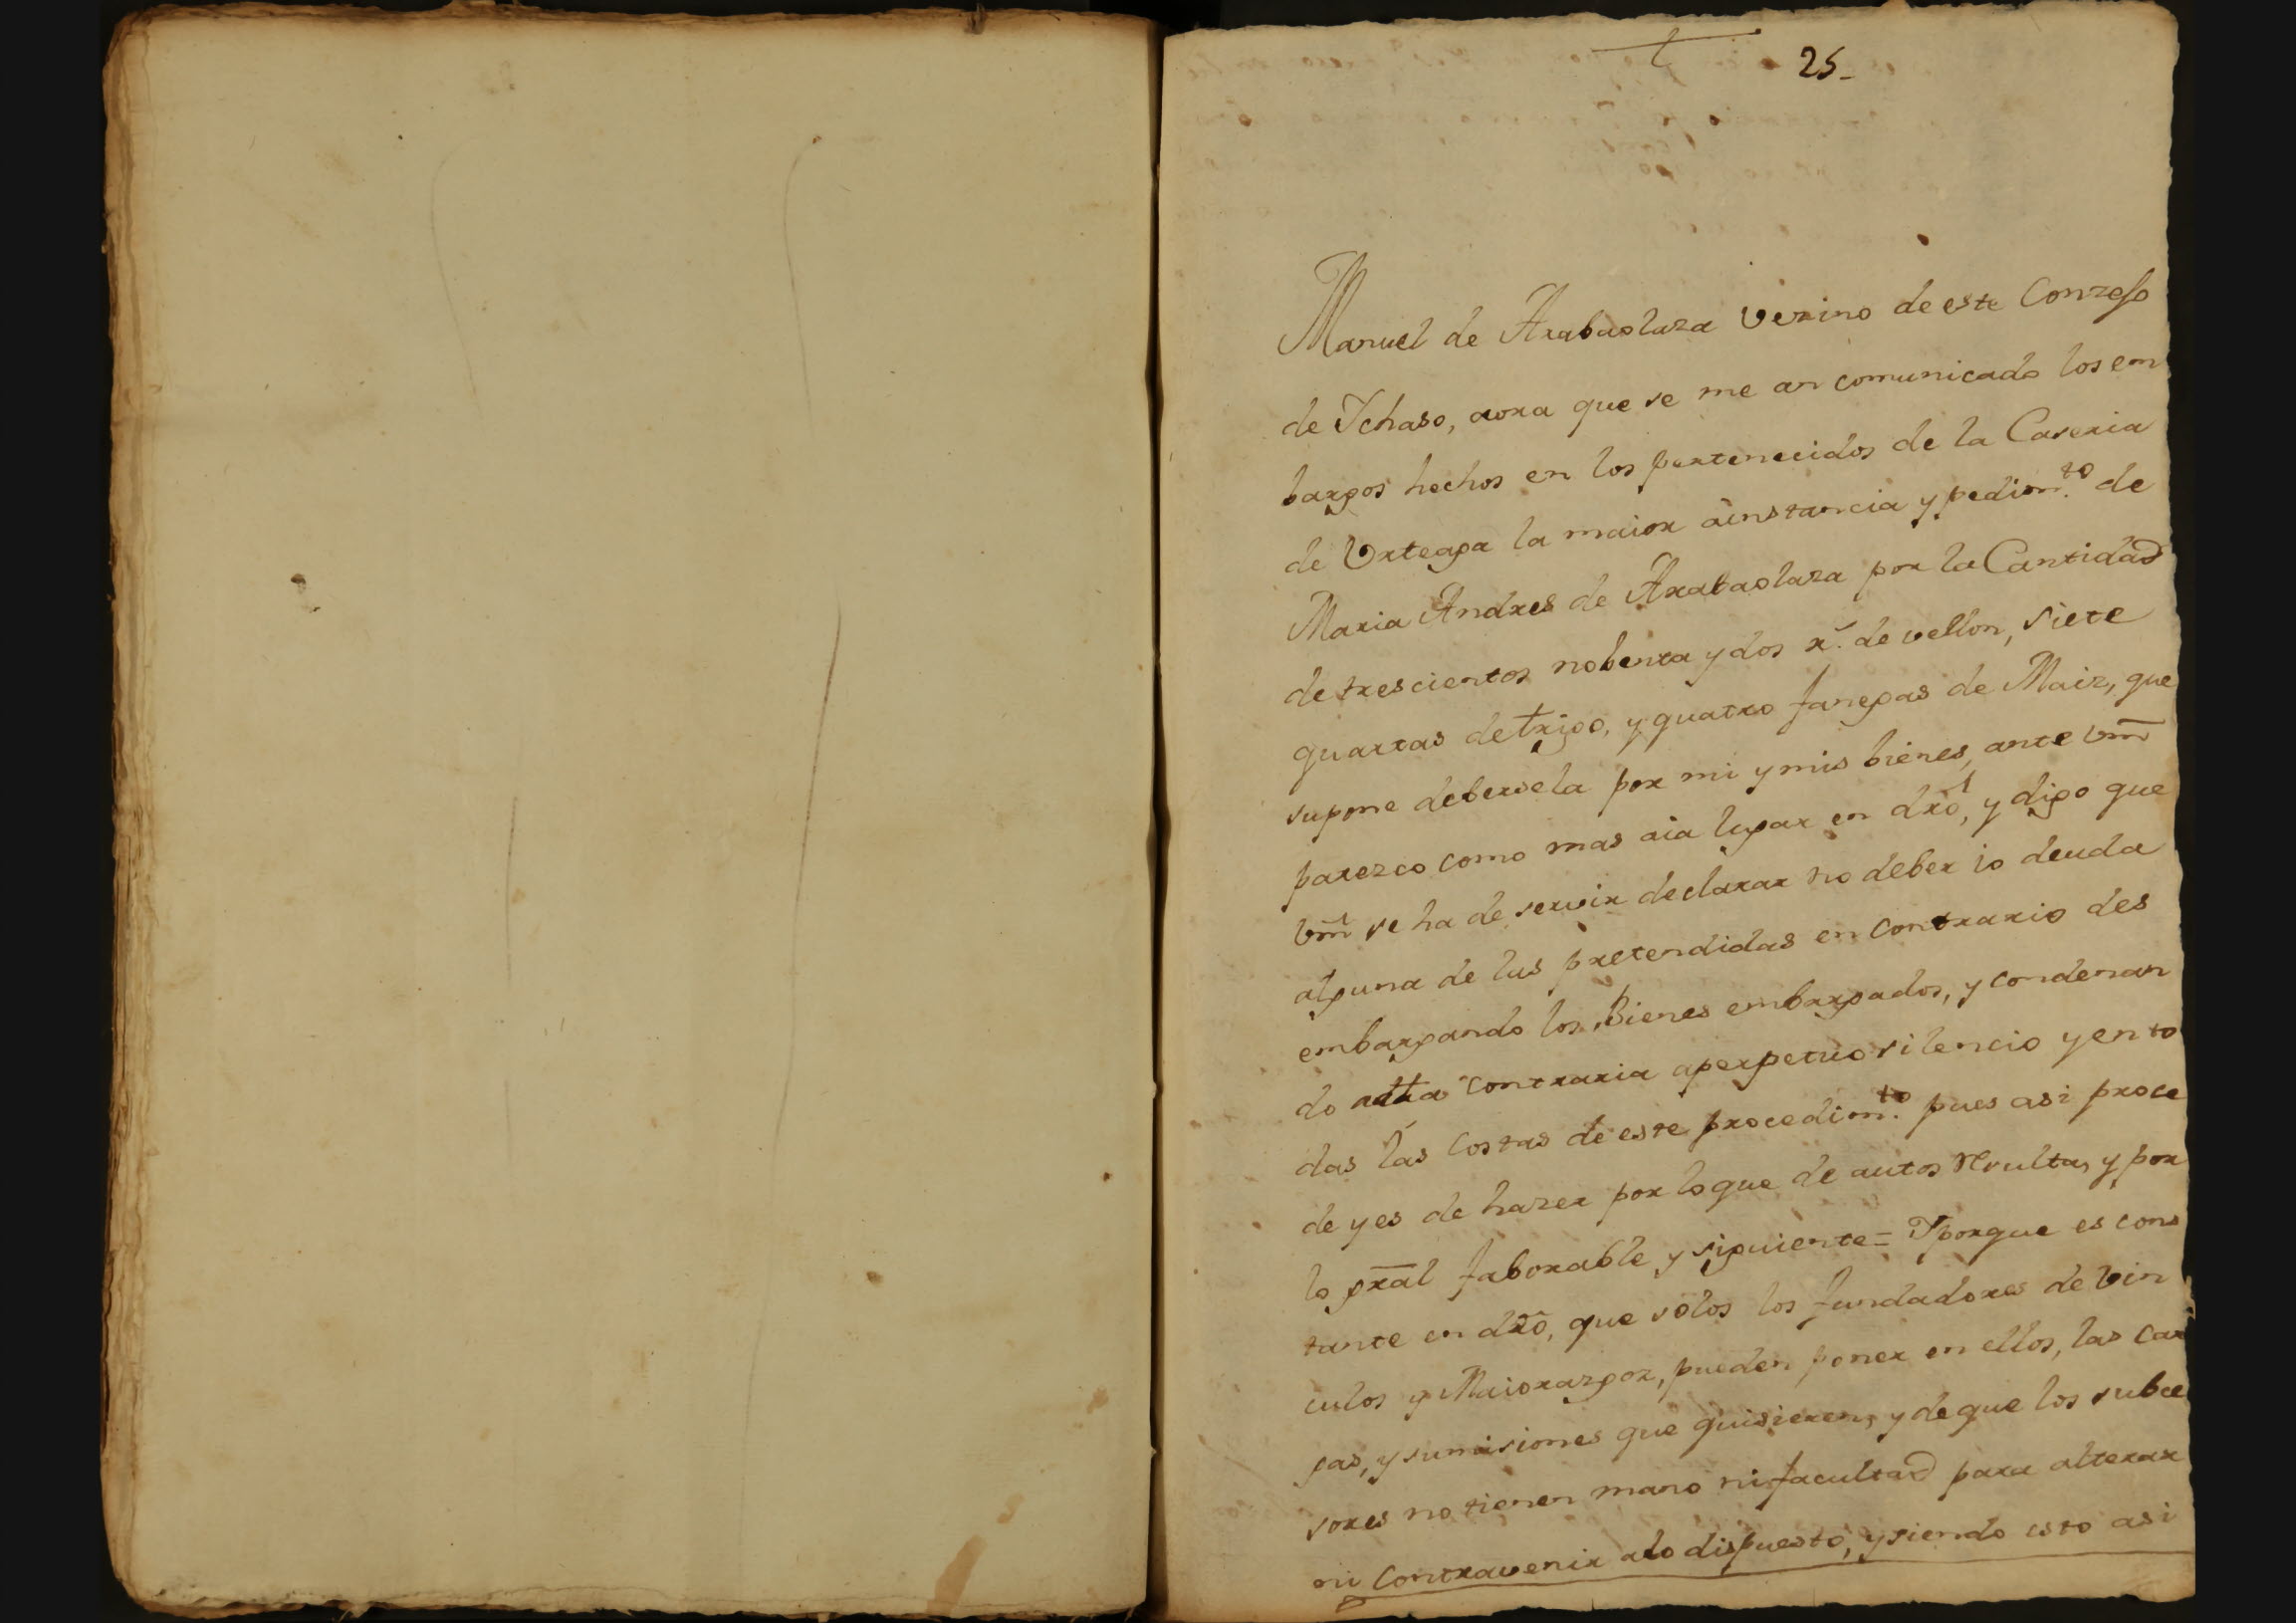 25
Manuel de Arabaolaza vezino de este Conzejo
de Ychaso, aora que se me an comunicado los em
bargos hechos en los pertenecidos de la Caseria
de Urteaga la maior a instancia y pedim.to de
Maria Andres de Arabaolaza por la Cantidad
de trescientos nobenta y dos r.s de vellon, siete
quartas de trigo, y quatro fanegas de Maiz, que
supone debersela por mi y mis bienes, ante Vm
parezco como mas aia lugar en dro, y digo que
Vm se ha de servir declarar no deber io deuda
alguna de las pretendidas en contrario des
embargando los Bienes embargados, y condenan
do a contraria a perpetuo silencio y en to
das las costas de este procedim.to pues asi proce
de y es de hazer por lo que de autos resulta, y por
lo gral faborable y siguiente = Y porque es cons
tante en dro, que solos los fundadores de vin
culos y Maiorazgoz, pueden poner en ellos, las car
gas, y sumisiones que quisieren, y de que los subce
sores no tienen mano ni facultad para alterar
ni contravenir a lo dispuesto, y siendo esto asi